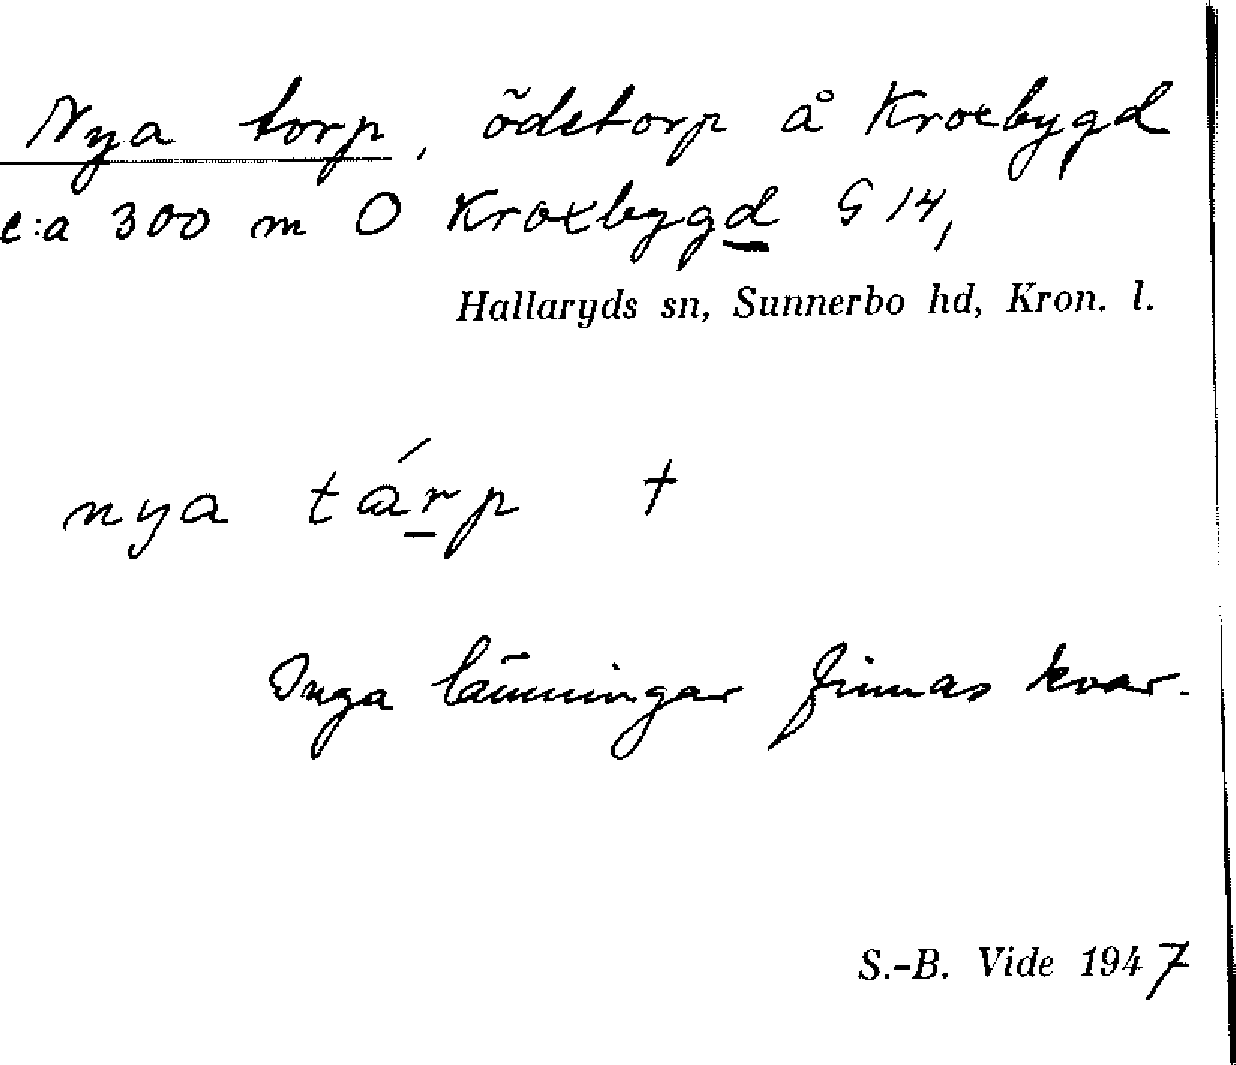 Nya torp, ödetorp å Kroxbygd
c:a 300 m O Kroxbygd G 14,
Hallaryds sn, Sunnerbo hd, Kron. l.
nya tárp †
Inga lämningar finnas kvar.
S.-B. Vide 1947